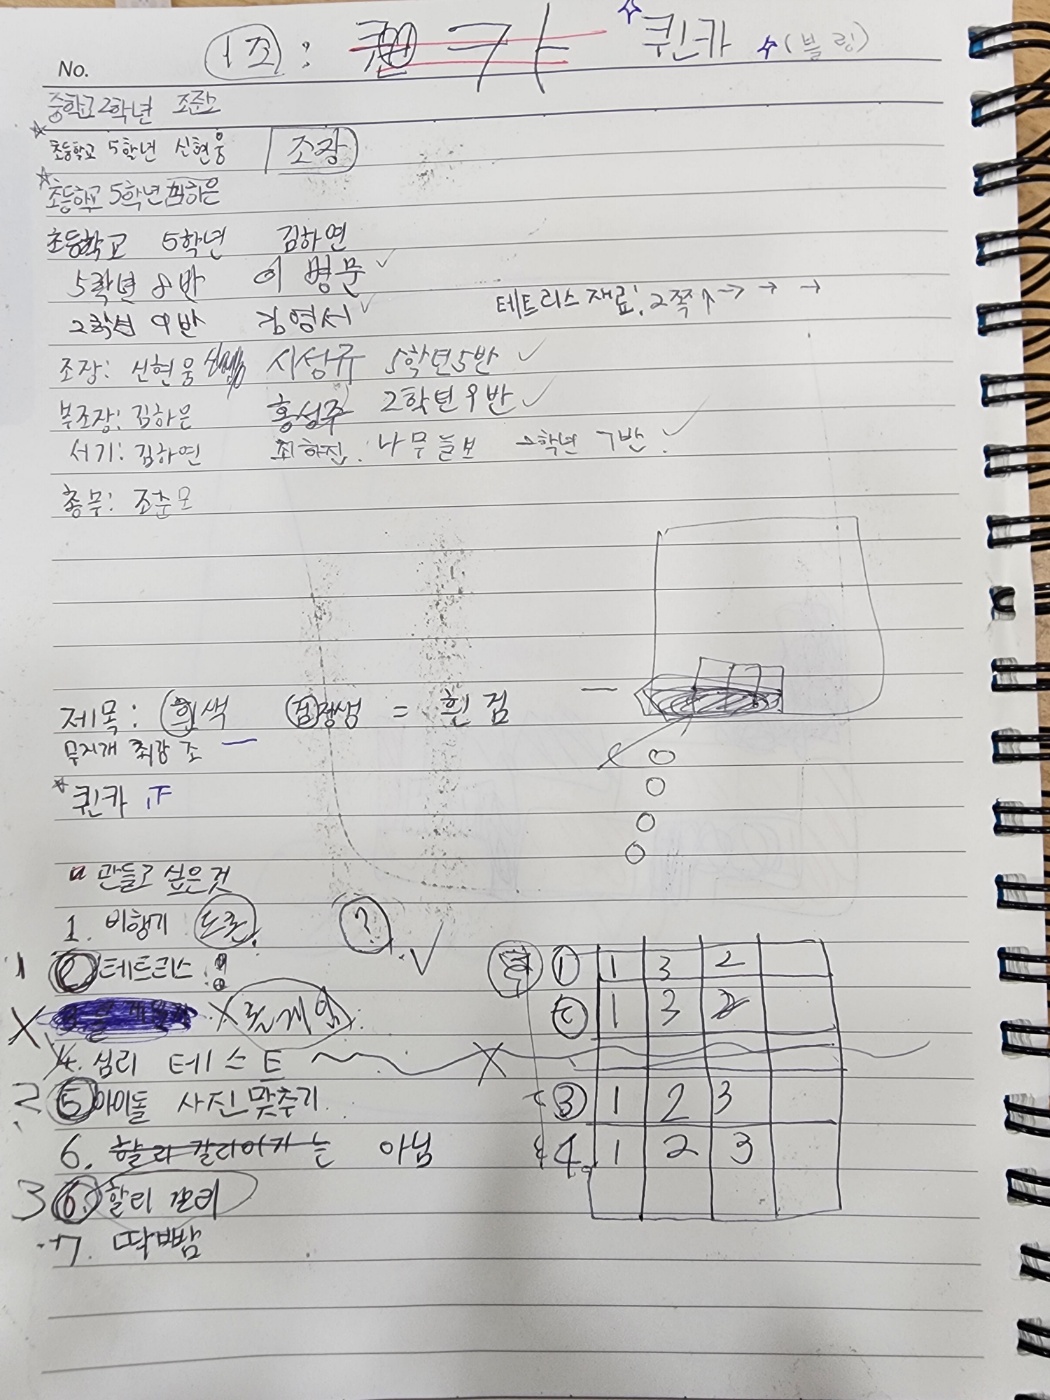 1조: 퀸카 퀸카 (블링)
No.
중학교 2학년 조준모
초등학교 5학년 신현웅 조장
초등학교 5학년 김하은
초등학교 5학년 김하연
5학년 8반 이병문
2학년 9반 김영서
테트리스 재료: 2쪽↑→ → →
조장: 신현웅 시성규 5학년 5반
부조장: 김하은 홍성주 2학년 9반
서기: 김하연 최하진. 나무늘보 학년 7반.
총무: 조준모
제목: 흰색 검정색 = 흰 검
무지개 최강 조
퀸카
만들고 싶은것
1. 비행기 드론. ?
1 2 테트리스 !
X X 게임
4. 심리 테스트
2 5 아이돌 사진 맞추기
6. 할리 칼리아키 는 아님
3 6. 할리 갈리
7. 딱뺌
1 1 3 2
2 1 3 2
3 1 2 3
4. 1 2 3